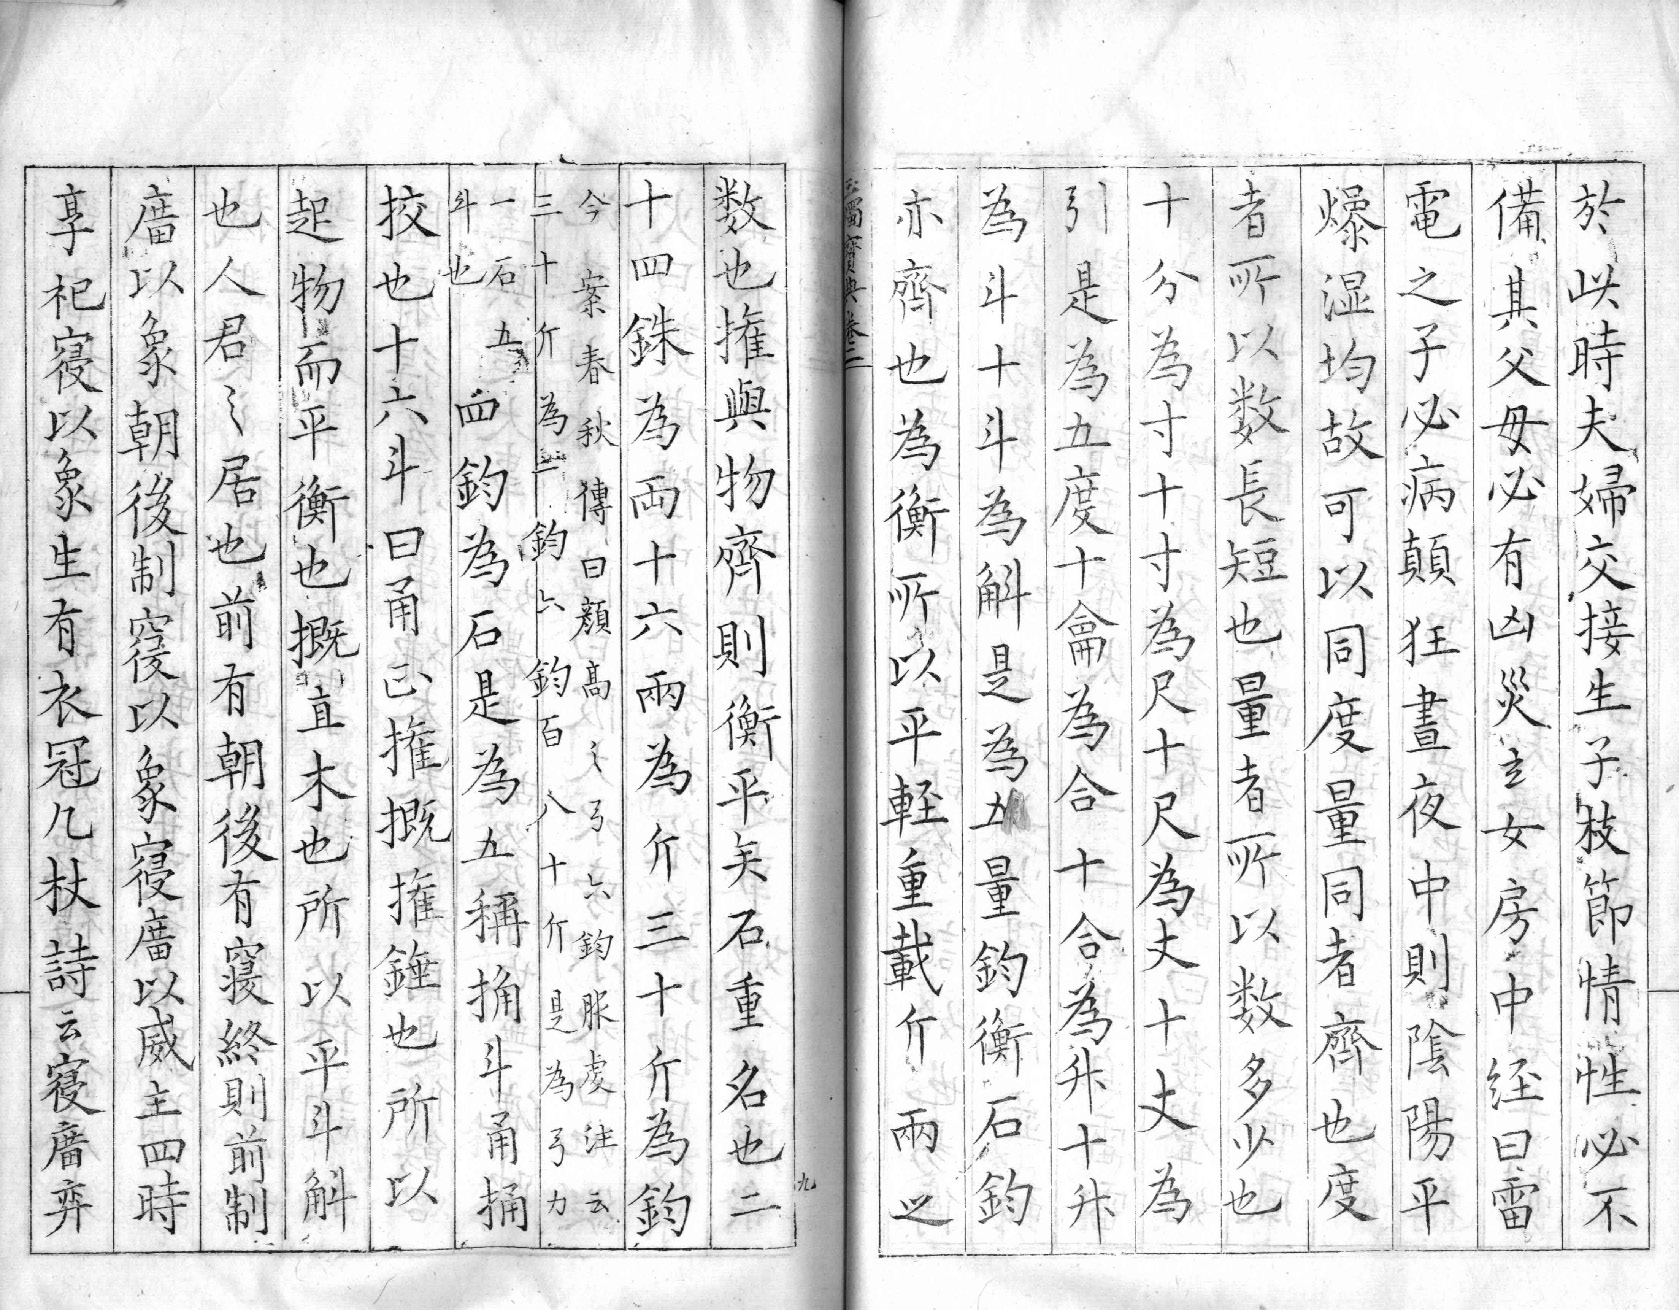 於此時夫婦交接生子枝節情性必不
備其父母必有凶災玄女房中經曰雷
電之子必病顛狂晝夜中則陰陽平
燥湿均故可以同度量同者齊也度
者所以数長短也量者所以数多少也
十分為寸十寸為尺十尺為丈十丈為
引是為五度十龠為合十合為升十升
為斗十斗為斛是為五量鈞衡石鈞
亦齊也為衡所以平輕重載斤兩之
玉燭寳典卷二
数也搉與物齊則衡平矣石重名也二
十四銖為両十六兩為斤三十斤為鈞
今案春秋傳曰顔高之弓六鈞服虔注云
三十斤為一鈞六鈞百八十斤是為弓力
一石五
斗也
四鈞為石是為五稱捔斗甬捅
挍也十六斗曰甬正搉概搉錘也所以
起物而平衡也概直木也所以平斗斛
也人君之居也前有朝後有寑終則前制
廟以象朝後制寑以象寑廟以威主四時
享祀寑以象生有衣冠几杖詩云寑廟弈
九